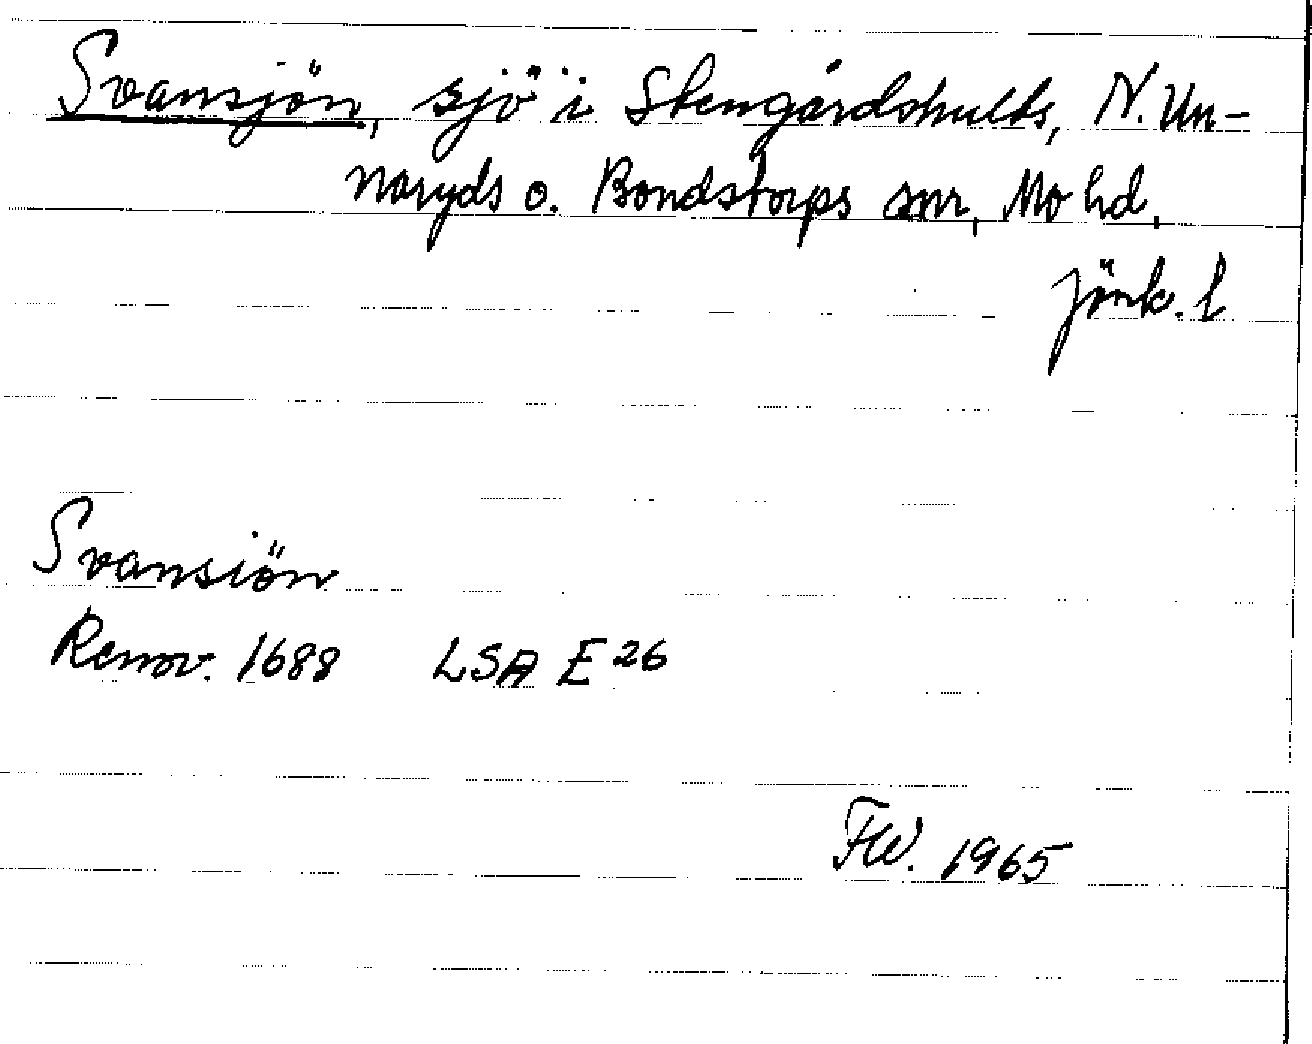 Svansjön, sjö i Stengårdshults, N. Un-
naryds o. Bondstorps snr, Mo hd,
Jönk. l
Svansiön
Renov. 1688 LSA E 26
FW. 1965